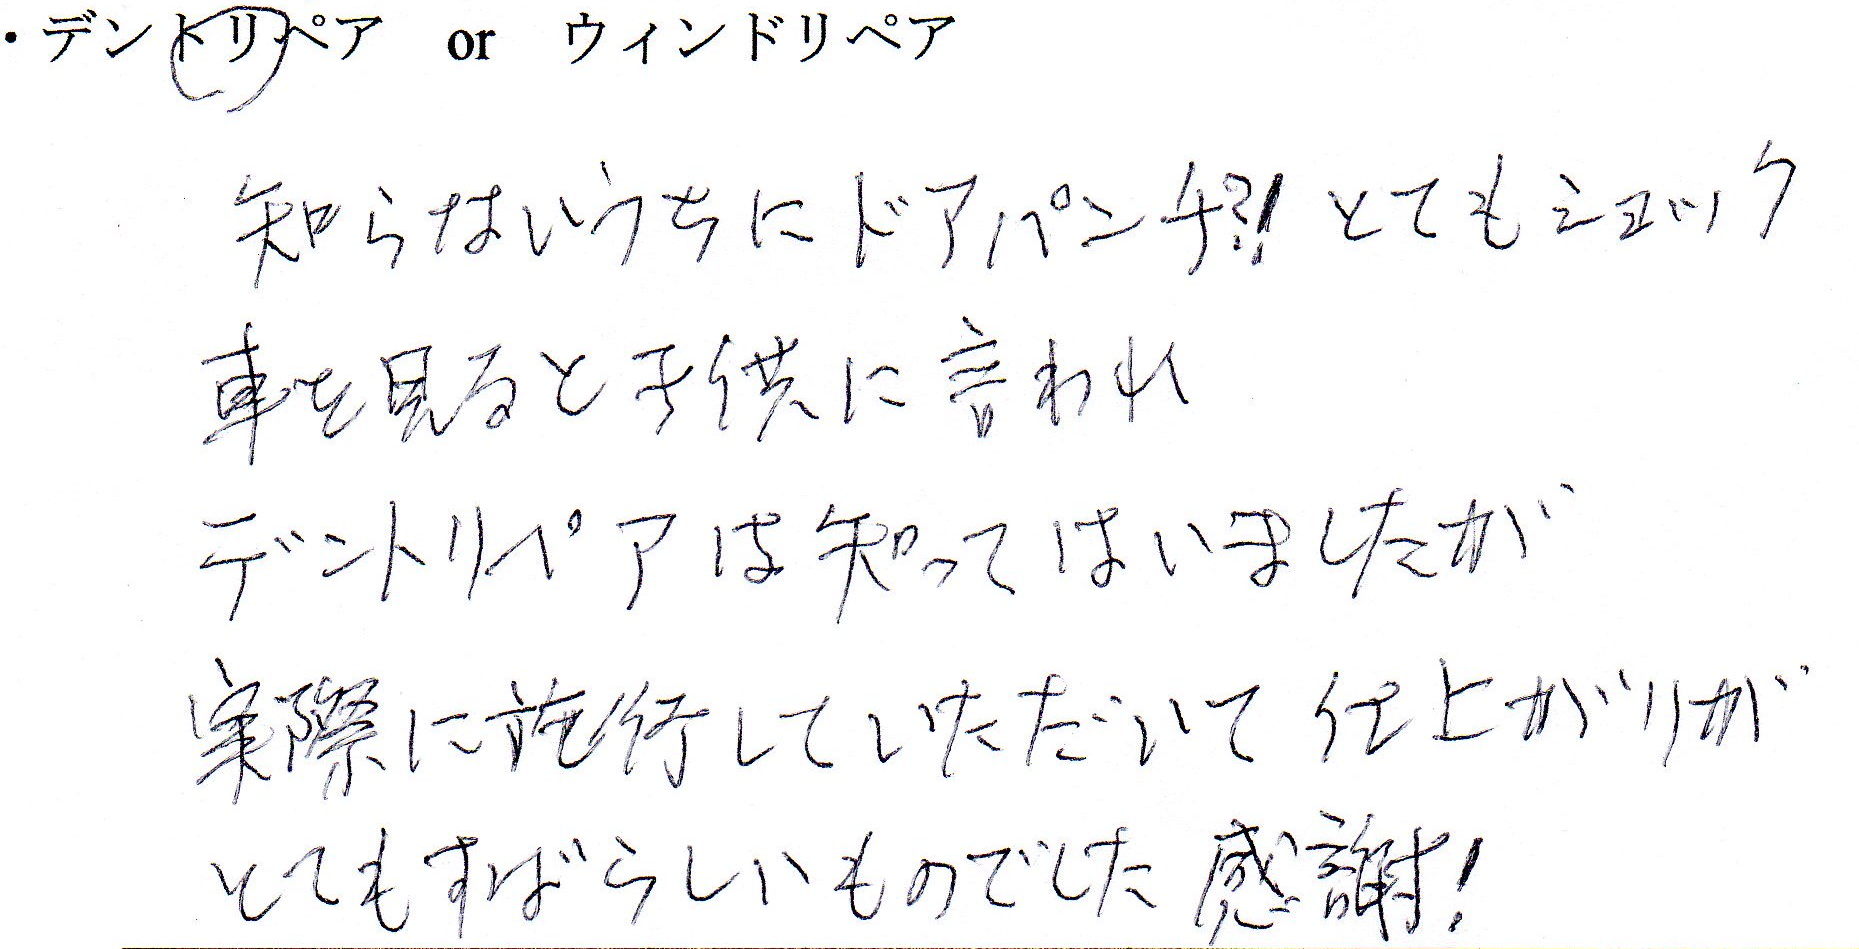 ・デントリペア or ウィンドリペア
知らないうちにドアパンチ?! とてもショック
車を見ると子供に言われ
デントリペアは知ってはいましたが
実際に施行していただいて仕上がりが
とてもすばらしいものでした 感謝!